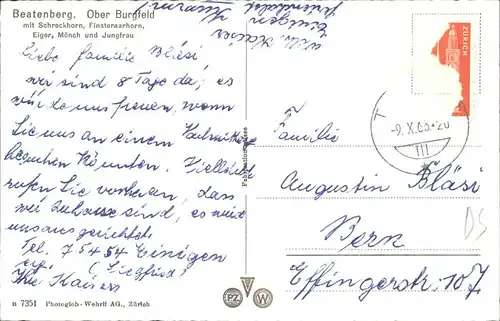 Beatenberg. Ober Burgfeld
mit Schreckhorn, Finsteraarhorn,
Eiger, Mönch und Jungfrau
Liebe Familie Bläsi,
wir sind 8 Tage da; es
würde uns freuen, wenn
Sie uns an einem
besuchen könnten. Vielleicht
rufen Sie vorher an, dass
wir zuhause sind, es wird
uns ausgerichtet.
Tel. 75454 Einigen
Ihre Kaisers
n 7351 Photoglob-Wehrli AG., Zürich
PZ W
ZÜRICH
-9.X.65-20
III
Familie
Augustin Bläsi
Bern
Effingerstr. 107
DS